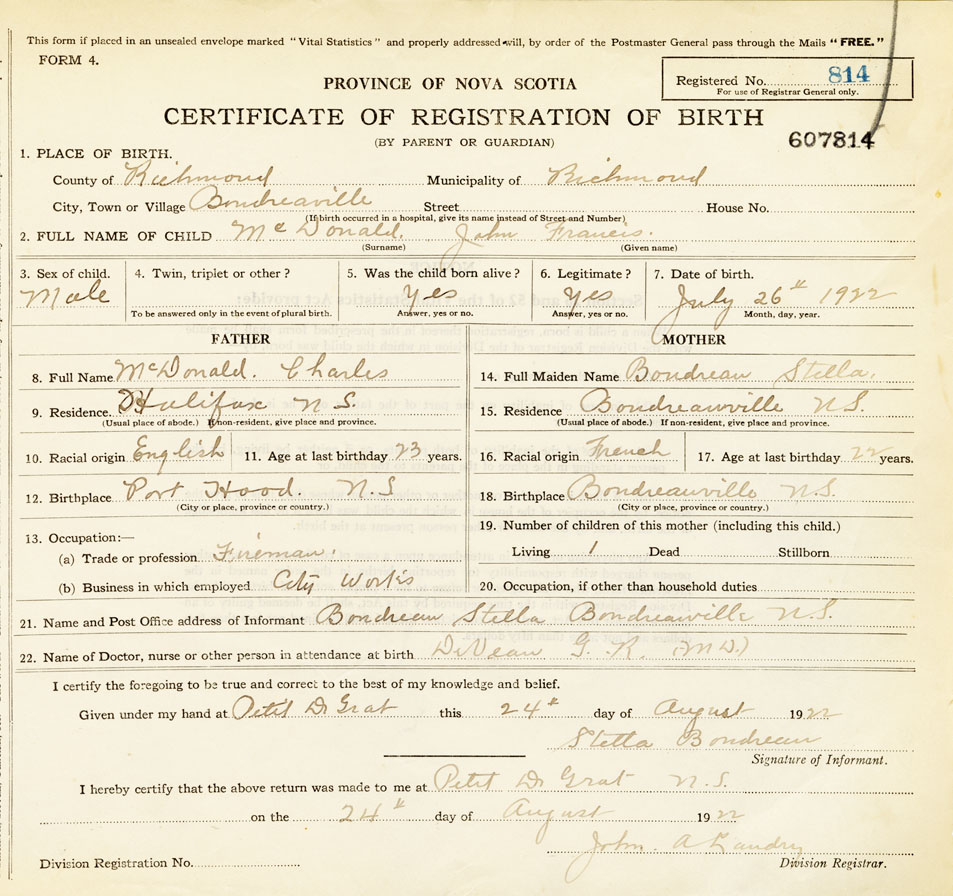 This form if placed in an unsealed envelope marked "Vital Statistics" and properly addressed will, by order of the Postmaster General pass through the Mails "FREE."
FORM 4.
Registered No. 814
For use of Registrar General only.
PROVINCE OF NOVA SCOTIA
CERTIFICATE OF REGISTRATION OF BIRTH
(BY PARENT OR GUARDIAN)
607814
1. PLACE OF BIRTH.
County of Richmond Municipality of Richmond
City, Town or Village Boudreaville Street House No.
(If birth occurred in a hospital, give its name instead of Street and Number)
2. FULL NAME OF CHILD McDonald. John Francis.
(Surname) (Given name)
3. Sex of child. 4. Twin, triplet or other? 5. Was the child born alive? 6. Legitimate? 7. Date of birth.
Male Yes Yes July 26th 1922
To be answered only in the event of plural birth. Answer, yes or no. Answer, yes or no. Month, day, year.
FATHER
8. Full Name McDonald. Charles
9. Residence. Halifax N S.
(Usual place of abode.) If non-resident, give place and province.
10. Racial origin English 11. Age at last birthday 23 years.
12. Birthplace Port Hood. N.S
(City or place, province or country.)
13. Occupation:—
(a) Trade or profession Fireman.
(b) Business in which employed City Works
MOTHER
14. Full Maiden Name Boudreau Stella.
15. Residence Boudreauville N.S.
(Usual place of abode.) If non-resident, give place and province.
16. Racial origin French 17. Age at last birthday 22 years.
18. Birthplace Boudreauville N.S.
(City or place, province or country.)
19. Number of children of this mother (including this child.)
Living 1 Dead Stillborn
20. Occupation, if other than household duties
21. Name and Post Office address of Informant Boudreau Stella Boudreauville N.S.
22. Name of Doctor, nurse or other person in attendance at birth DeVeau G. R. (M.D.)
I certify the foregoing to be true and correct to the best of my knowledge and belief.
Given under my hand at Petit D Grat this 24th day of August 1922
Stella Boudreau
Signature of Informant.
I hereby certify that the above return was made to me at Petit D Grat N.S.
on the 24th day of August 1922
John. A Landry
Division Registration No. Division Registrar.